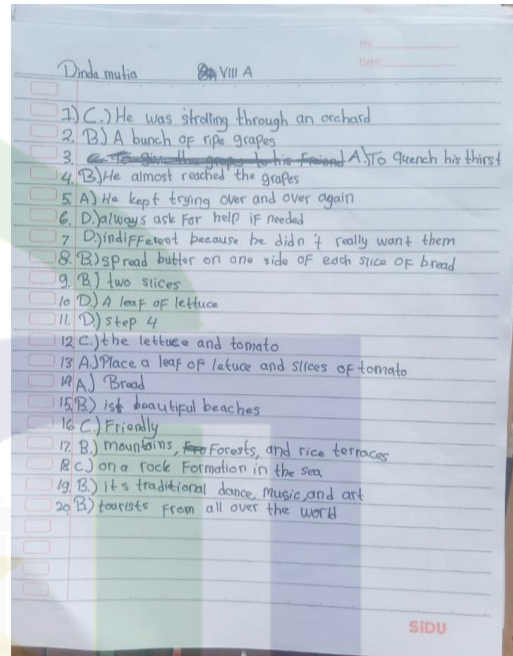 No.
Date:
Dinda mutia VIII A
1) C.) He was stroling through an orchard
2. B) A bunch of ripe grapes
3. A) To quench his thirst
4. B) He almost reached the grapes
5. A) He kept trying over and over again
6. D.) always ask for help if needed
7 D.) indifferent because he didn't really want them
8. B) spread butter on one side of each slice of bread
9. B.) two slices
10 D.) A leaf of lettuce
11. D.) step 4
12 C.) the lettuce and tomato
13 A.) Place a leaf of letuce and slices of tomato
14 A.) Bread
15. B.) ist beautiful beaches
16 C.) Friendly
17. B.) mountains, Forests, and rice terraces
18 C.) on a rock Formation in the sea
19. B.) its traditional dance, music, and art
20 B) tourists from all over the world
SiDU